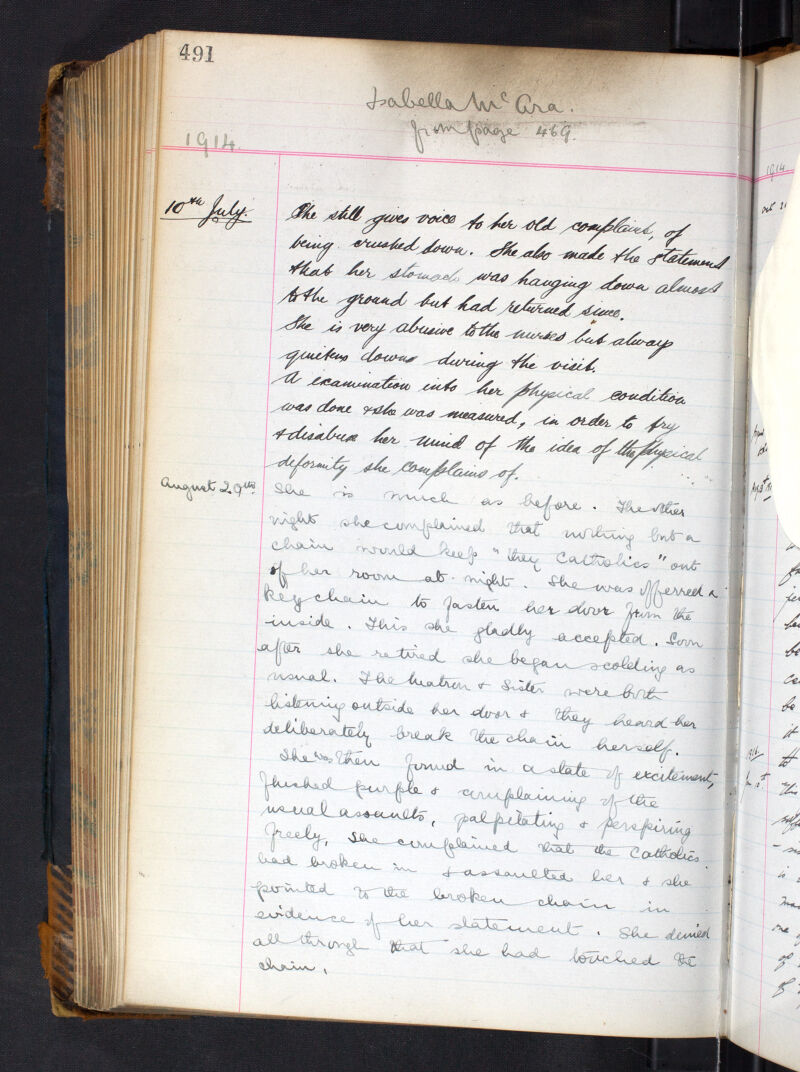 491
Isabella McAra.
from page 469.
1914.
10th July.
She still gives voice to her old complaint, of
being crushed down. She also made the statement
that her stomach was hanging down almost
to the ground but had returned since.
She is very abusive to the nurses but always
quietens down during the visit.
A examination into her physical condition
was done & she was measured, in order to try
& disabuse her mind of the idea of the physical
deformity she complains of.
August 29th
She is much as before. The other
night she complained that nothing but a
chain would keep "they Catholics" out
of her room at night. She was offerred a
key chain to fasten her door from the
inside. This she gladly accepted. Soon
after she retired she began scolding as
usual. The Matron & Sister were both
listening outside her door & they heard her
deliberately break the chain herself.
She was then found in a state of excitement,
flushed purple & complaining of the
usual assaults, palpitating & perspiring
freely, She complained that the Catholics
had broken in & assaulted her & she
pointed to the broken chain in
evidence of her statement. She denied
all through that she had touched the
chain.
1914